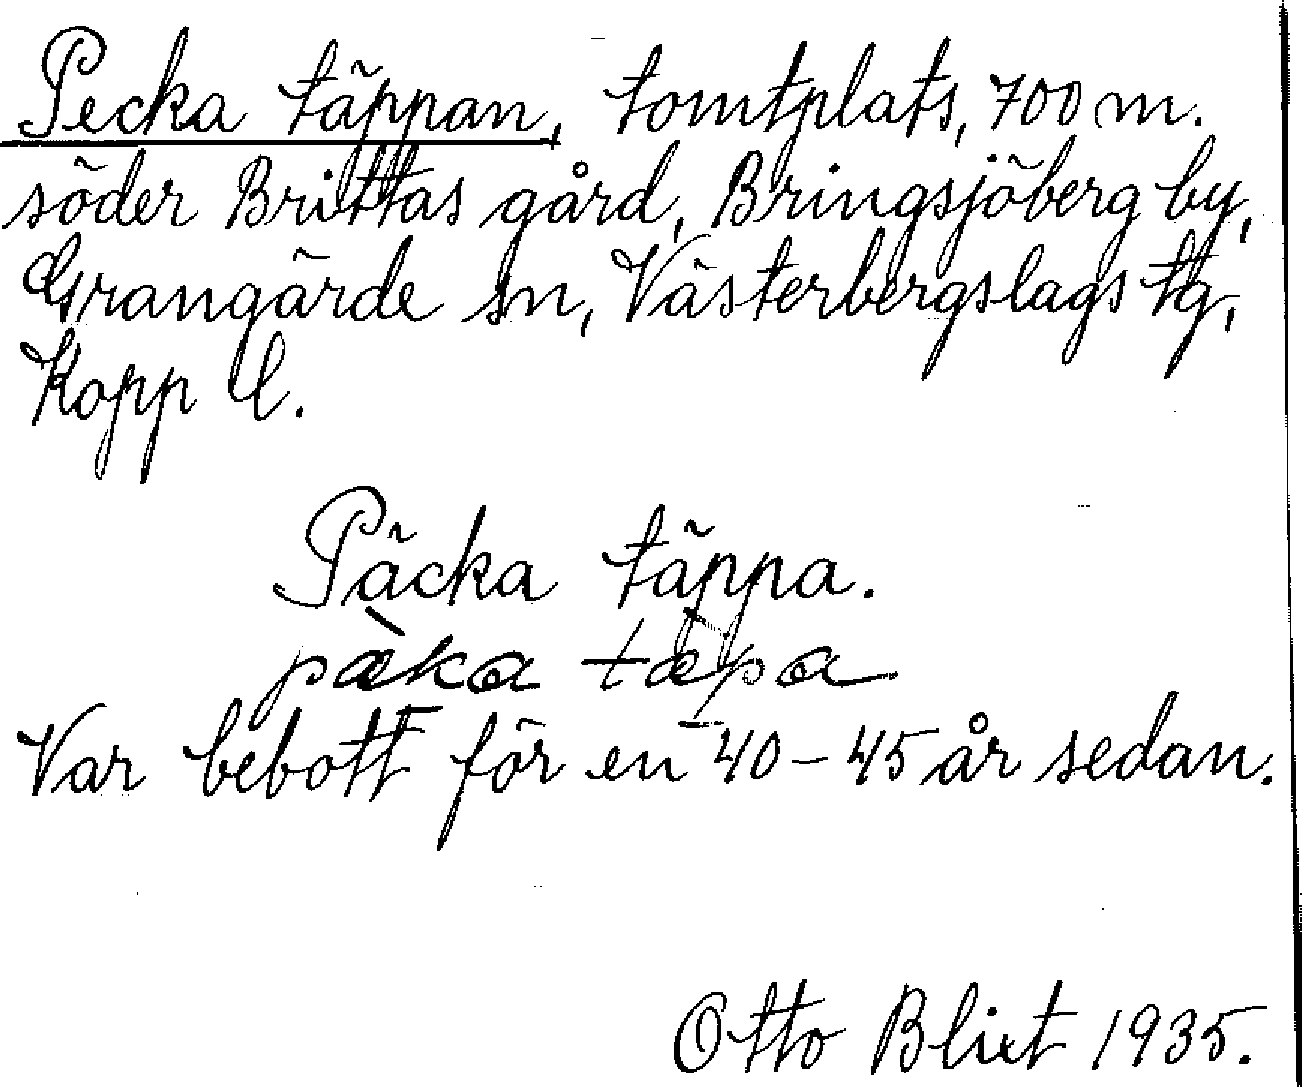 Pecka täppan, tomtplats, 700 m.
söder Brittas gård, Bringsjöberg by,
Grangärde sn, Västerbergslags tg,
Kopp l.
Päcka täppa.
pæ̀ka tæpa
Var bebott för en 40-45 år sedan.
Otto Blixt 1935.